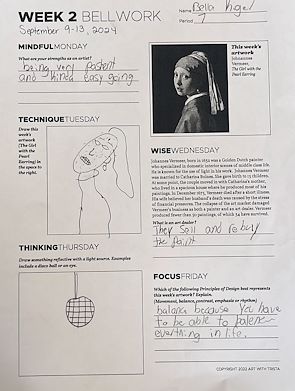 WEEK 2 BELLWORK
Name Bella
Period 7
September 9-13, 2024
MINDFULMONDAY
What are your strengths as an artist?
being very
and kinda easy going.
This week's
artwork
Johannes
Vermeer,
The Girl
with the
Pearl Earring
TECHNIQUETUESDAY
Draw this
week's
artwork
(The Girl
with the
Pearl
Earring) in
the space to
the right.
WISEWEDNESDAY
Johannes Vermeer, born in 1632 was a Golden Dutch painter
who specialized in domestic interior scenes of middle class life.
He is known for the use of light in his work. Johannes Vermeer
was married to Catharina Bolnes. She gave birth to 15 children.
At some point, the couple moved in with Catharina's mother,
who lived in a spacious house where he produced most of his
paintings. In December 1675, Vermeer died after a short illness.
His wife believed her husband's death was caused by the stress
of financial pressures. The collapse of the art market damaged
Vermeer's business as both a painter and an art dealer. Vermeer
produced fewer than 50 paintings, of which 34 have survived.
What is an art dealer?
They Sell and re buy
the Paint
THINKINGTHURSDAY
Draw something reflective with a light source. Examples
include a disco ball or an eye.
FOCUSFRIDAY
Which of the following Principles of Design best represents
this week's artwork? Explain.
(Movement, balance, contrast, emphasis or rhythm)
because You have
to be able to
everything in life.
COPYRIGHT 2022 ART WITH TRISTA